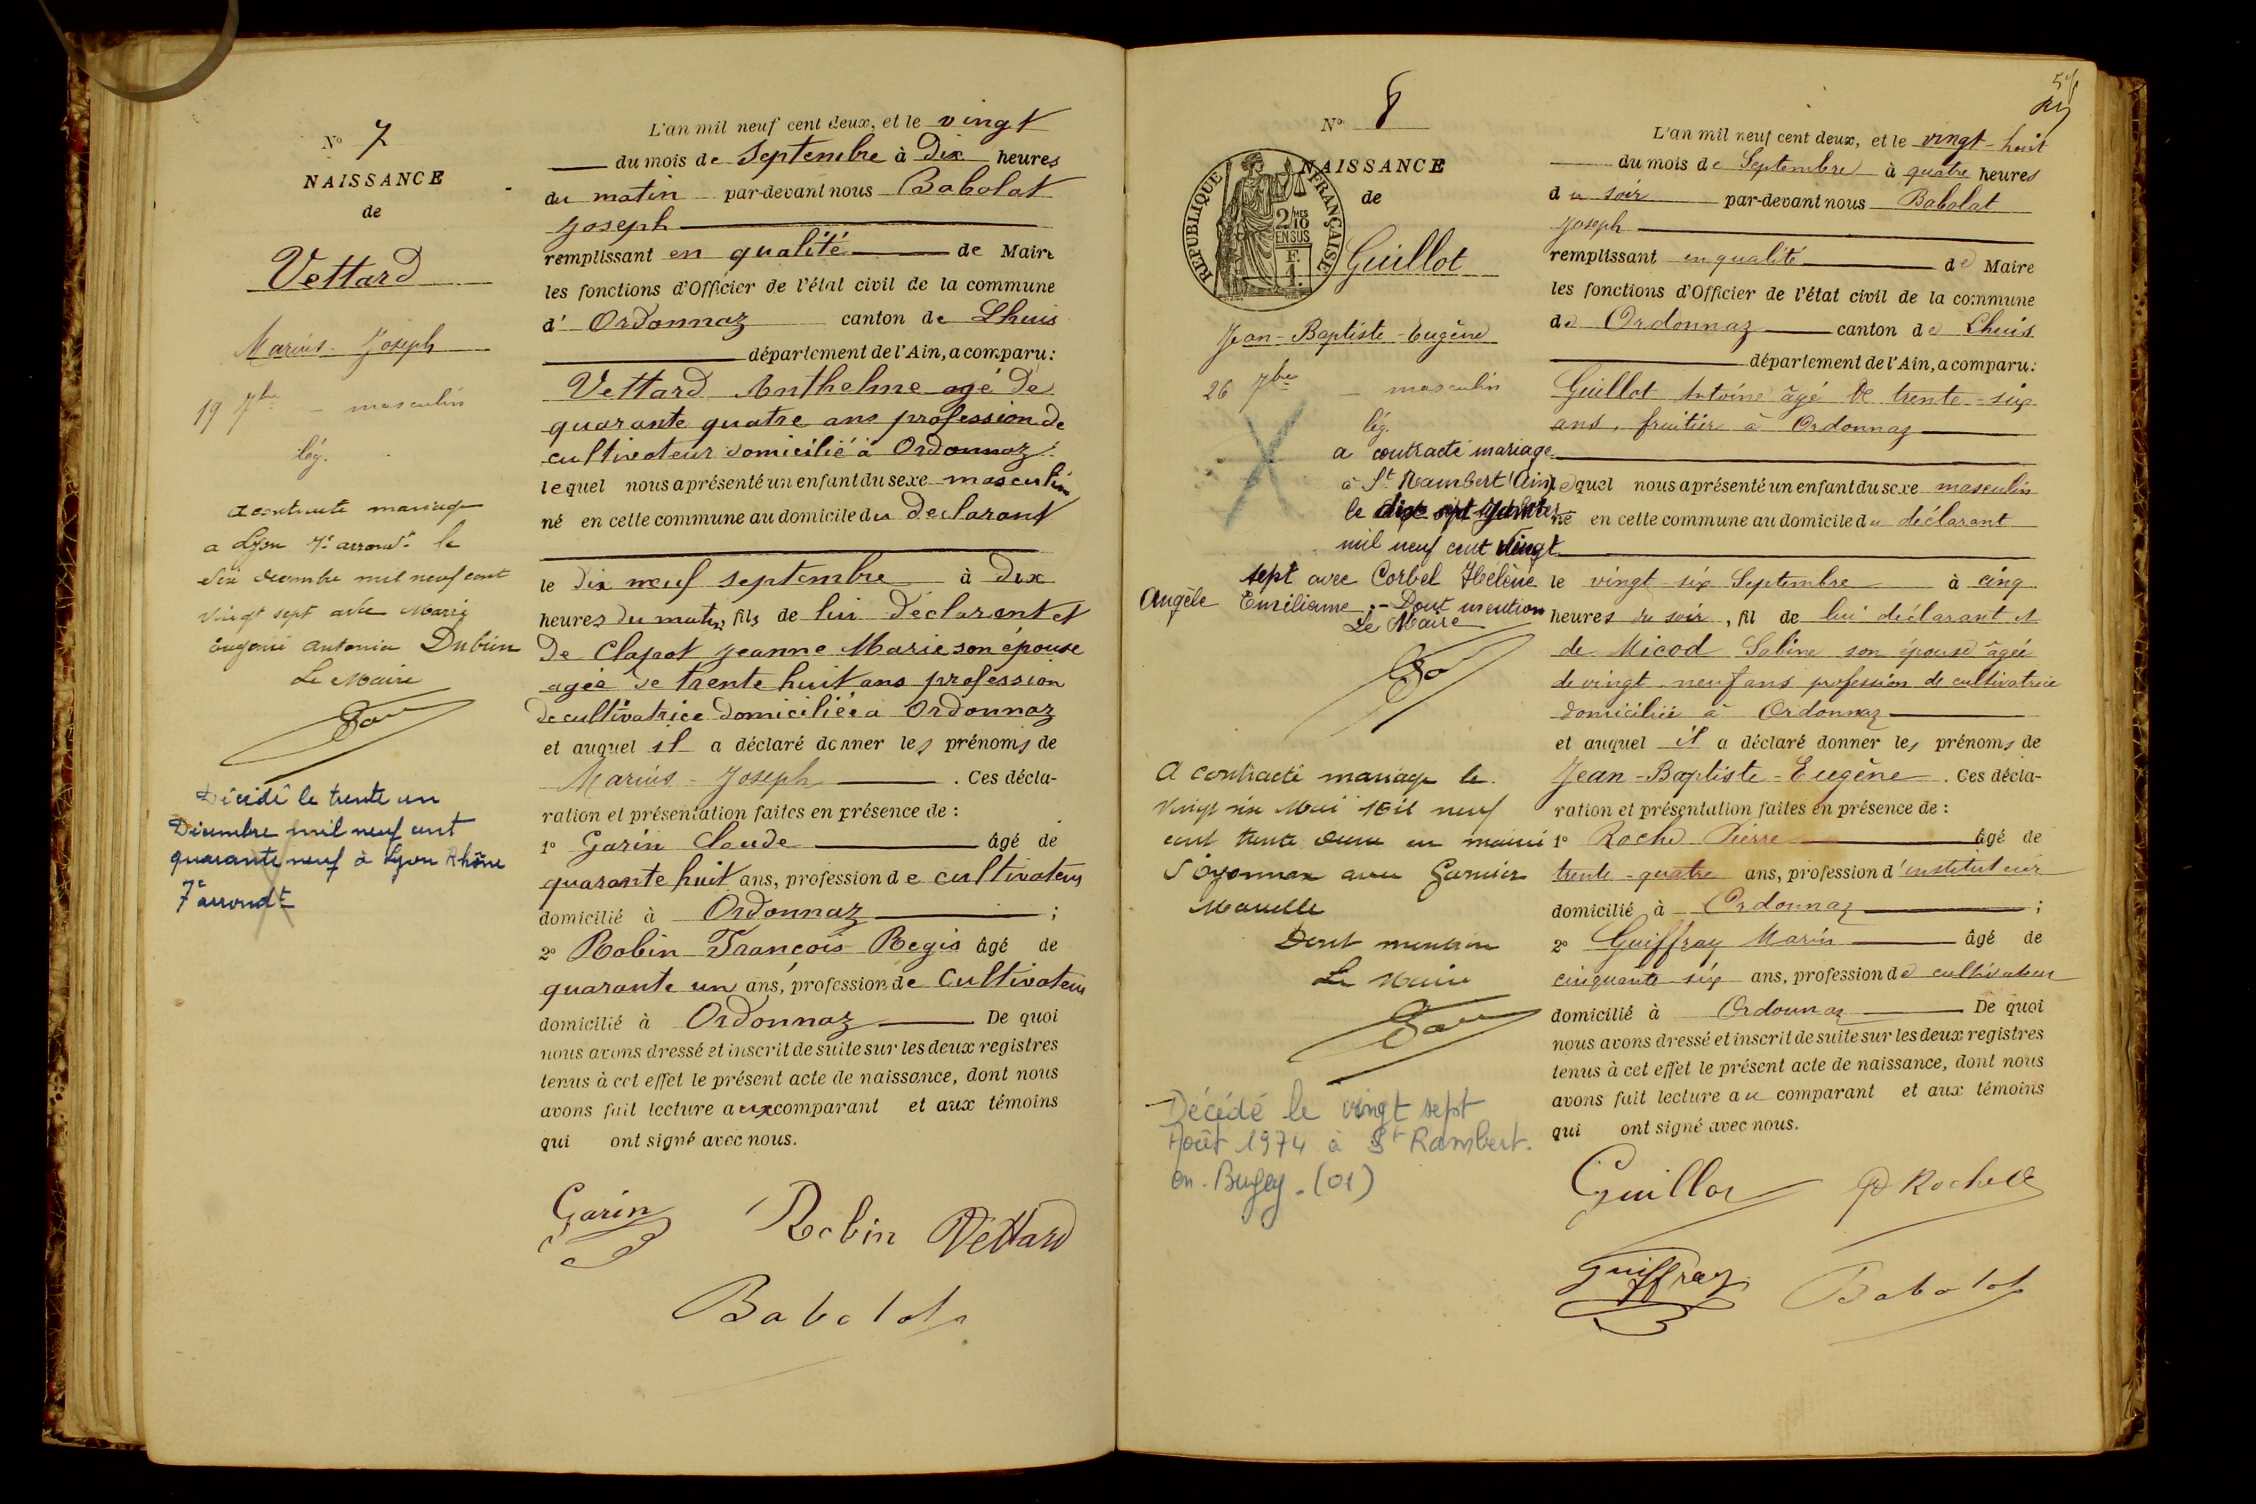 Nº 7
NAISSANCE
de
Vettard
Marius-Joseph
19 7bre - masculin
lég.
a contracté mariage
a Lyon 7e arrondt le
dix décembre mil neuf cent
vingt sept avec Marie
Eugénie Antonia Dubien
Le Maire
Décédé le trente un
Décembre mil neuf cent
quarante neuf à Lyon Rhône
7e arrondt
L'an mil neuf cent deux, et le vingt
du mois de Septembre à Dix heures
du matin par-devant nous Babolat
Joseph
remplissant en qualité de Maire
les fonctions d'Officier de l'état civil de la commune
d' Ordonnaz canton de Lhuis
département de l'Ain, a comparu:
Vettard Anthelme agé de
quarante quatre ans profession de
cultivateur domicilié à Ordonnaz
lequel nous a présenté un enfant du sexe masculin
né en cette commune au domicile du Declarant
le dix neuf septembre à Dix
heures du matin, fils de lui Déclarant et
De Clapot Jeanne Marie son épouse
agée de trente huit ans profession
de cultivatrice domiciliée a Ordonnaz
et auquel il a déclaré donner les prénoms de
Marius-Joseph. Ces décla-
ration et présentation faites en présence de :
1º Garin Claude âgé de
quarante huit ans, profession de cultivateur
domicilié à Ordonnaz ;
2º Robin François Regis âgé de
quarante un ans, profession de Cultivateur
domicilié à Ordonnaz De quoi
nous avons dressé et inscrit de suite sur les deux registres
tenus à cet effet le présent acte de naissance, dont nous
avons fait lecture aux comparant et aux témoins
qui ont signé avec nous.
Garin Robin Vettard
Babolat
Nº 8
NAISSANCE
de
RÉPUBLIQUE FRANÇAISE
2/10
EN SUS
Guillot
Jean-Baptiste-Eugène
26 7bre - masculin
lég.
a contracté mariage
à St Rambert (Ain)
le dix sept
mil neuf cent vingt
sept avec Corbel Hélène
Angèle Emilienne.- Dont mention
Le Maire
A contracté mariage le
vingt six Mai Mil neuf
cent trente deux en mairie
d'Oyonnax avec Garnier
Marcelle
Dont mention
Le Maire
Décédé le vingt sept
Août 1974 à St Rambert.
en. Bugey. (01)
L'an mil neuf cent deux, et le vingt-huit
du mois de Septembre à quatre heures
du soir par-devant nous Babolat
Joseph
remplissant en qualité de Maire
les fonctions d'Officier de l'état civil de la commune
de Ordonnaz canton de Lhuis
département de l'Ain, a comparu:
Guillot Antoine âgé de trente-six
ans, fruitier à Ordonnaz
lequel nous a présenté un enfant du sexe masculin
né en cette commune au domicile du déclarant
le vingt six Septembre à cinq
heures du soir, fil de lui déclarant et
de Micod Sabine son épouse âgée
de vingt-neuf ans profession de cultivatrice
domiciliée à Ordonnaz
et auquel il a déclaré donner les prénoms de
Jean-Baptiste-Eugène. Ces décla-
ration et présentation faites en présence de :
1º Roche Pierre âgé de
trente-quatre ans, profession d'instituteur
domicilié à Ordonnaz ;
2º Guiffray Marin âgé de
cinquante six ans, profession de cultivateur
domicilié à Ordonnaz De quoi
nous avons dressé et inscrit de suite sur les deux registres
tenus à cet effet le présent acte de naissance, dont nous
avons fait lecture au comparant et aux témoins
qui ont signé avec nous.
Guillot P Roche
Guiffray Babolat